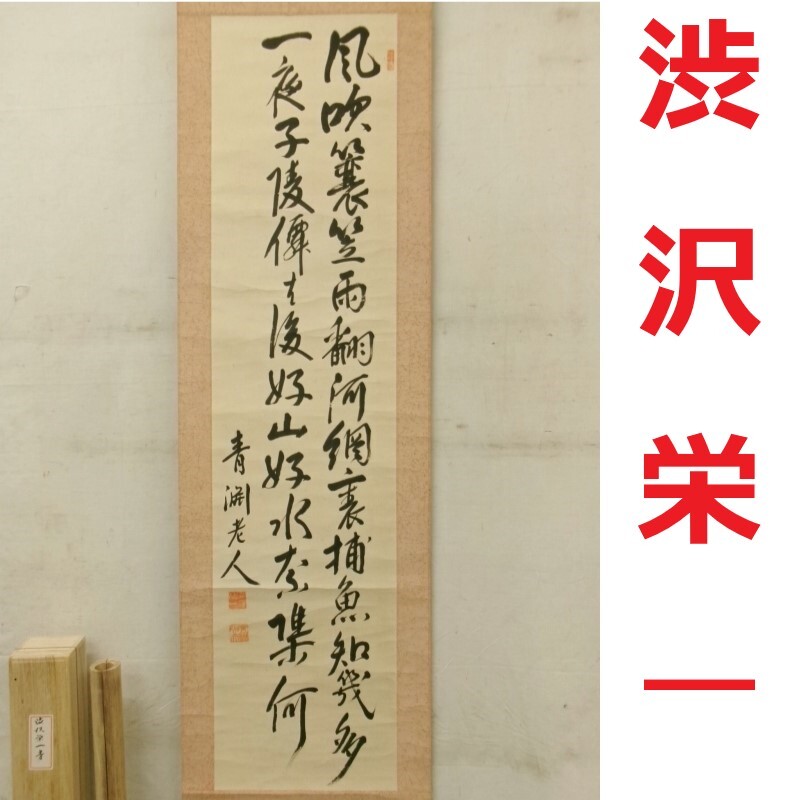 風吹簑笠雨翻河網裏捕魚知幾多
一子陵僊去後好山好水奈渠何
青淵老人
渋沢栄一